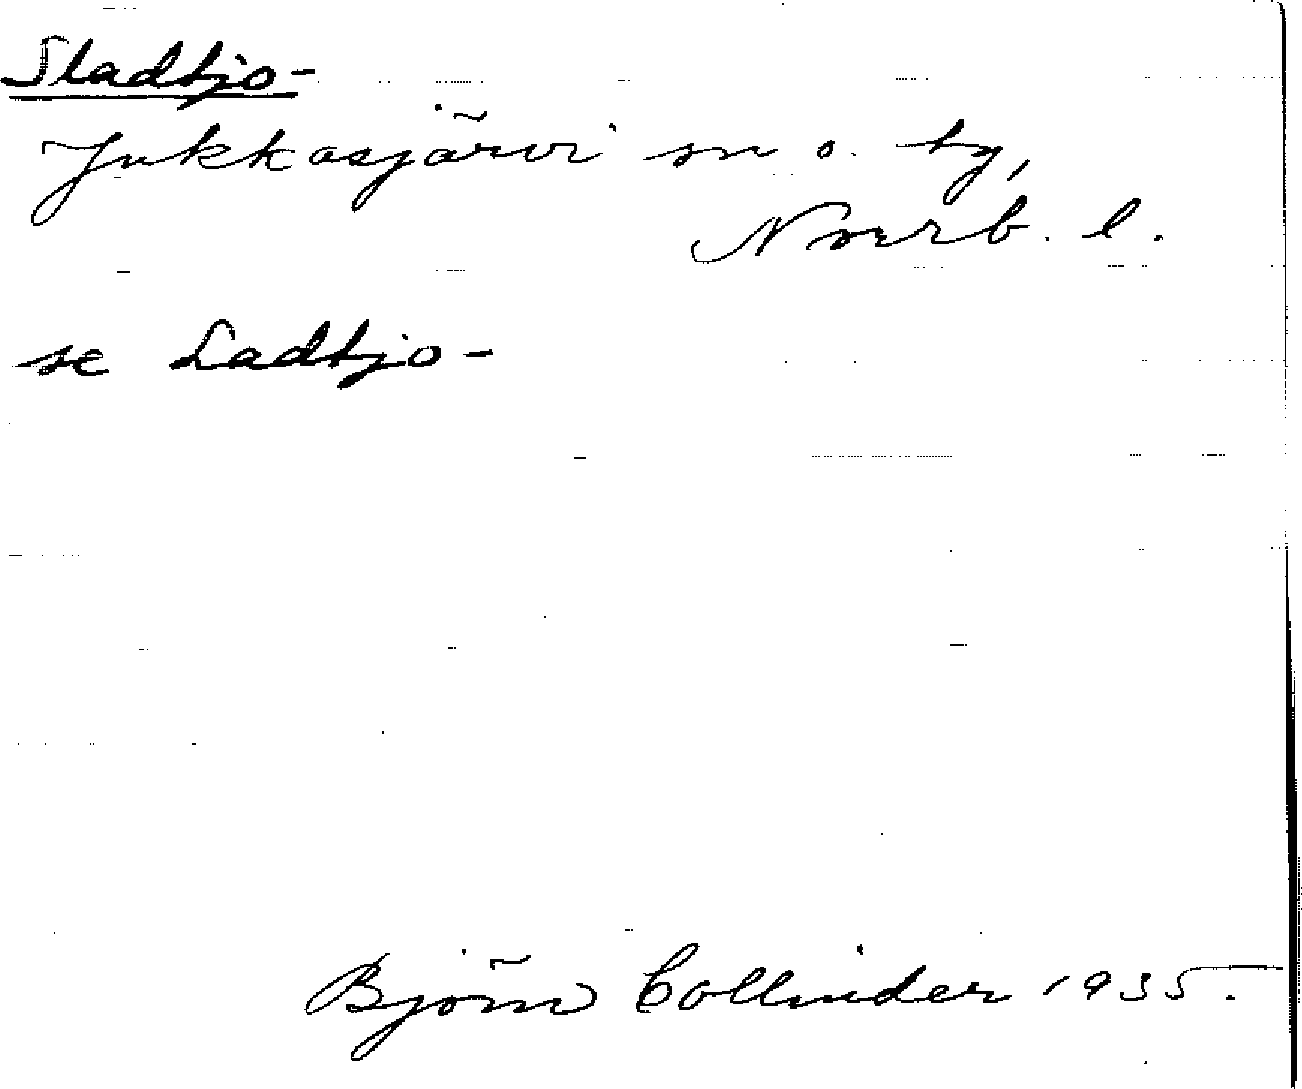 Sladtjo-
Jukkasjärvi sn o. tg,
Norrb. l.
se Ladtjo-
Björn Collinder 1935.